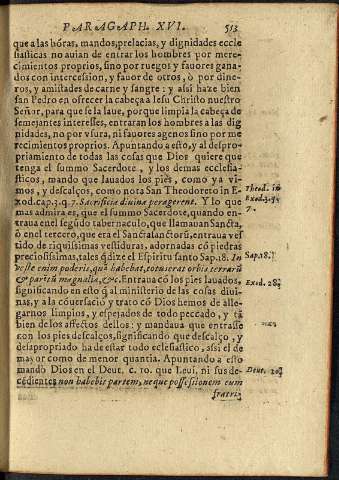 PARAGAPH. XVI. 513
que a las hóras, mandos, prelacias, y dignidades eccle
siasticas no auian de entrar los hombres por mere-
cimientos proprios, sino por ruegos y fauores gana-
dos con intercession, y fauor de otros, ò por dine-
ros, y amistades de carne y sangre: y assi haze bien
san Pedro en ofrecer la cabeça a Iesu Christo nuestro
Señor, para que se la laue, porque limpia la cabeça de
semejantes interesses, entraran los hombres a las dig
nidades, no por vsura, ni fauores agenos sino por me
recimientos proprios. Apuntando a esto, y al despro-
priamiento de todas las cosas que Dios quiere que
tenga el summo Sacerdote, y los demas ecclesia-
sticos, mando que lauados los pies, como ya vi-
mos, y descalços, como nota San Theodoreto in E-
xod. cap. 3. q. 7. Sacrificia diuina peragerent. Y lo que
mas admira es, que el summo Sacerdote, quando en-
traua en el segúdo tabernaculo, que llamauan Sancta,
ò en el tercero, que era el Sancta sanctorū, entraua ves
tido de riquissimas vestiduras, adornadas cō piedras
preciosissimas, tales q̃ dize el Espiritu santo Sap. 18. In
veste enim poderis, quā habebat, totus erat orbis terrarū
& parētū magnalia, &c. Entraua cō los pies lauados,
significando en esto q̃ al ministerio de las cosas diui-
nas, y a la cōuersació y trato cō Dios hemos de alle-
garnos limpios, y espejados de todo peccado, y tā
bien de los affectos dellos: y mandaua que entrasse
con los pies descalços, significando que descalço, y
desapropriado ha de estar todo eclesiastico, assi el de
mayor como de menor quantia. Apuntando a esto
mandò Dios en el Deut. c. 10. que Leui, ni sus de-
cēdientes non habebit partem, neque possessionem cum
fratri-
Theod. in
Exod. 3. q.
7.
Sap. 18.
Exod. 28.
Deut. 10.